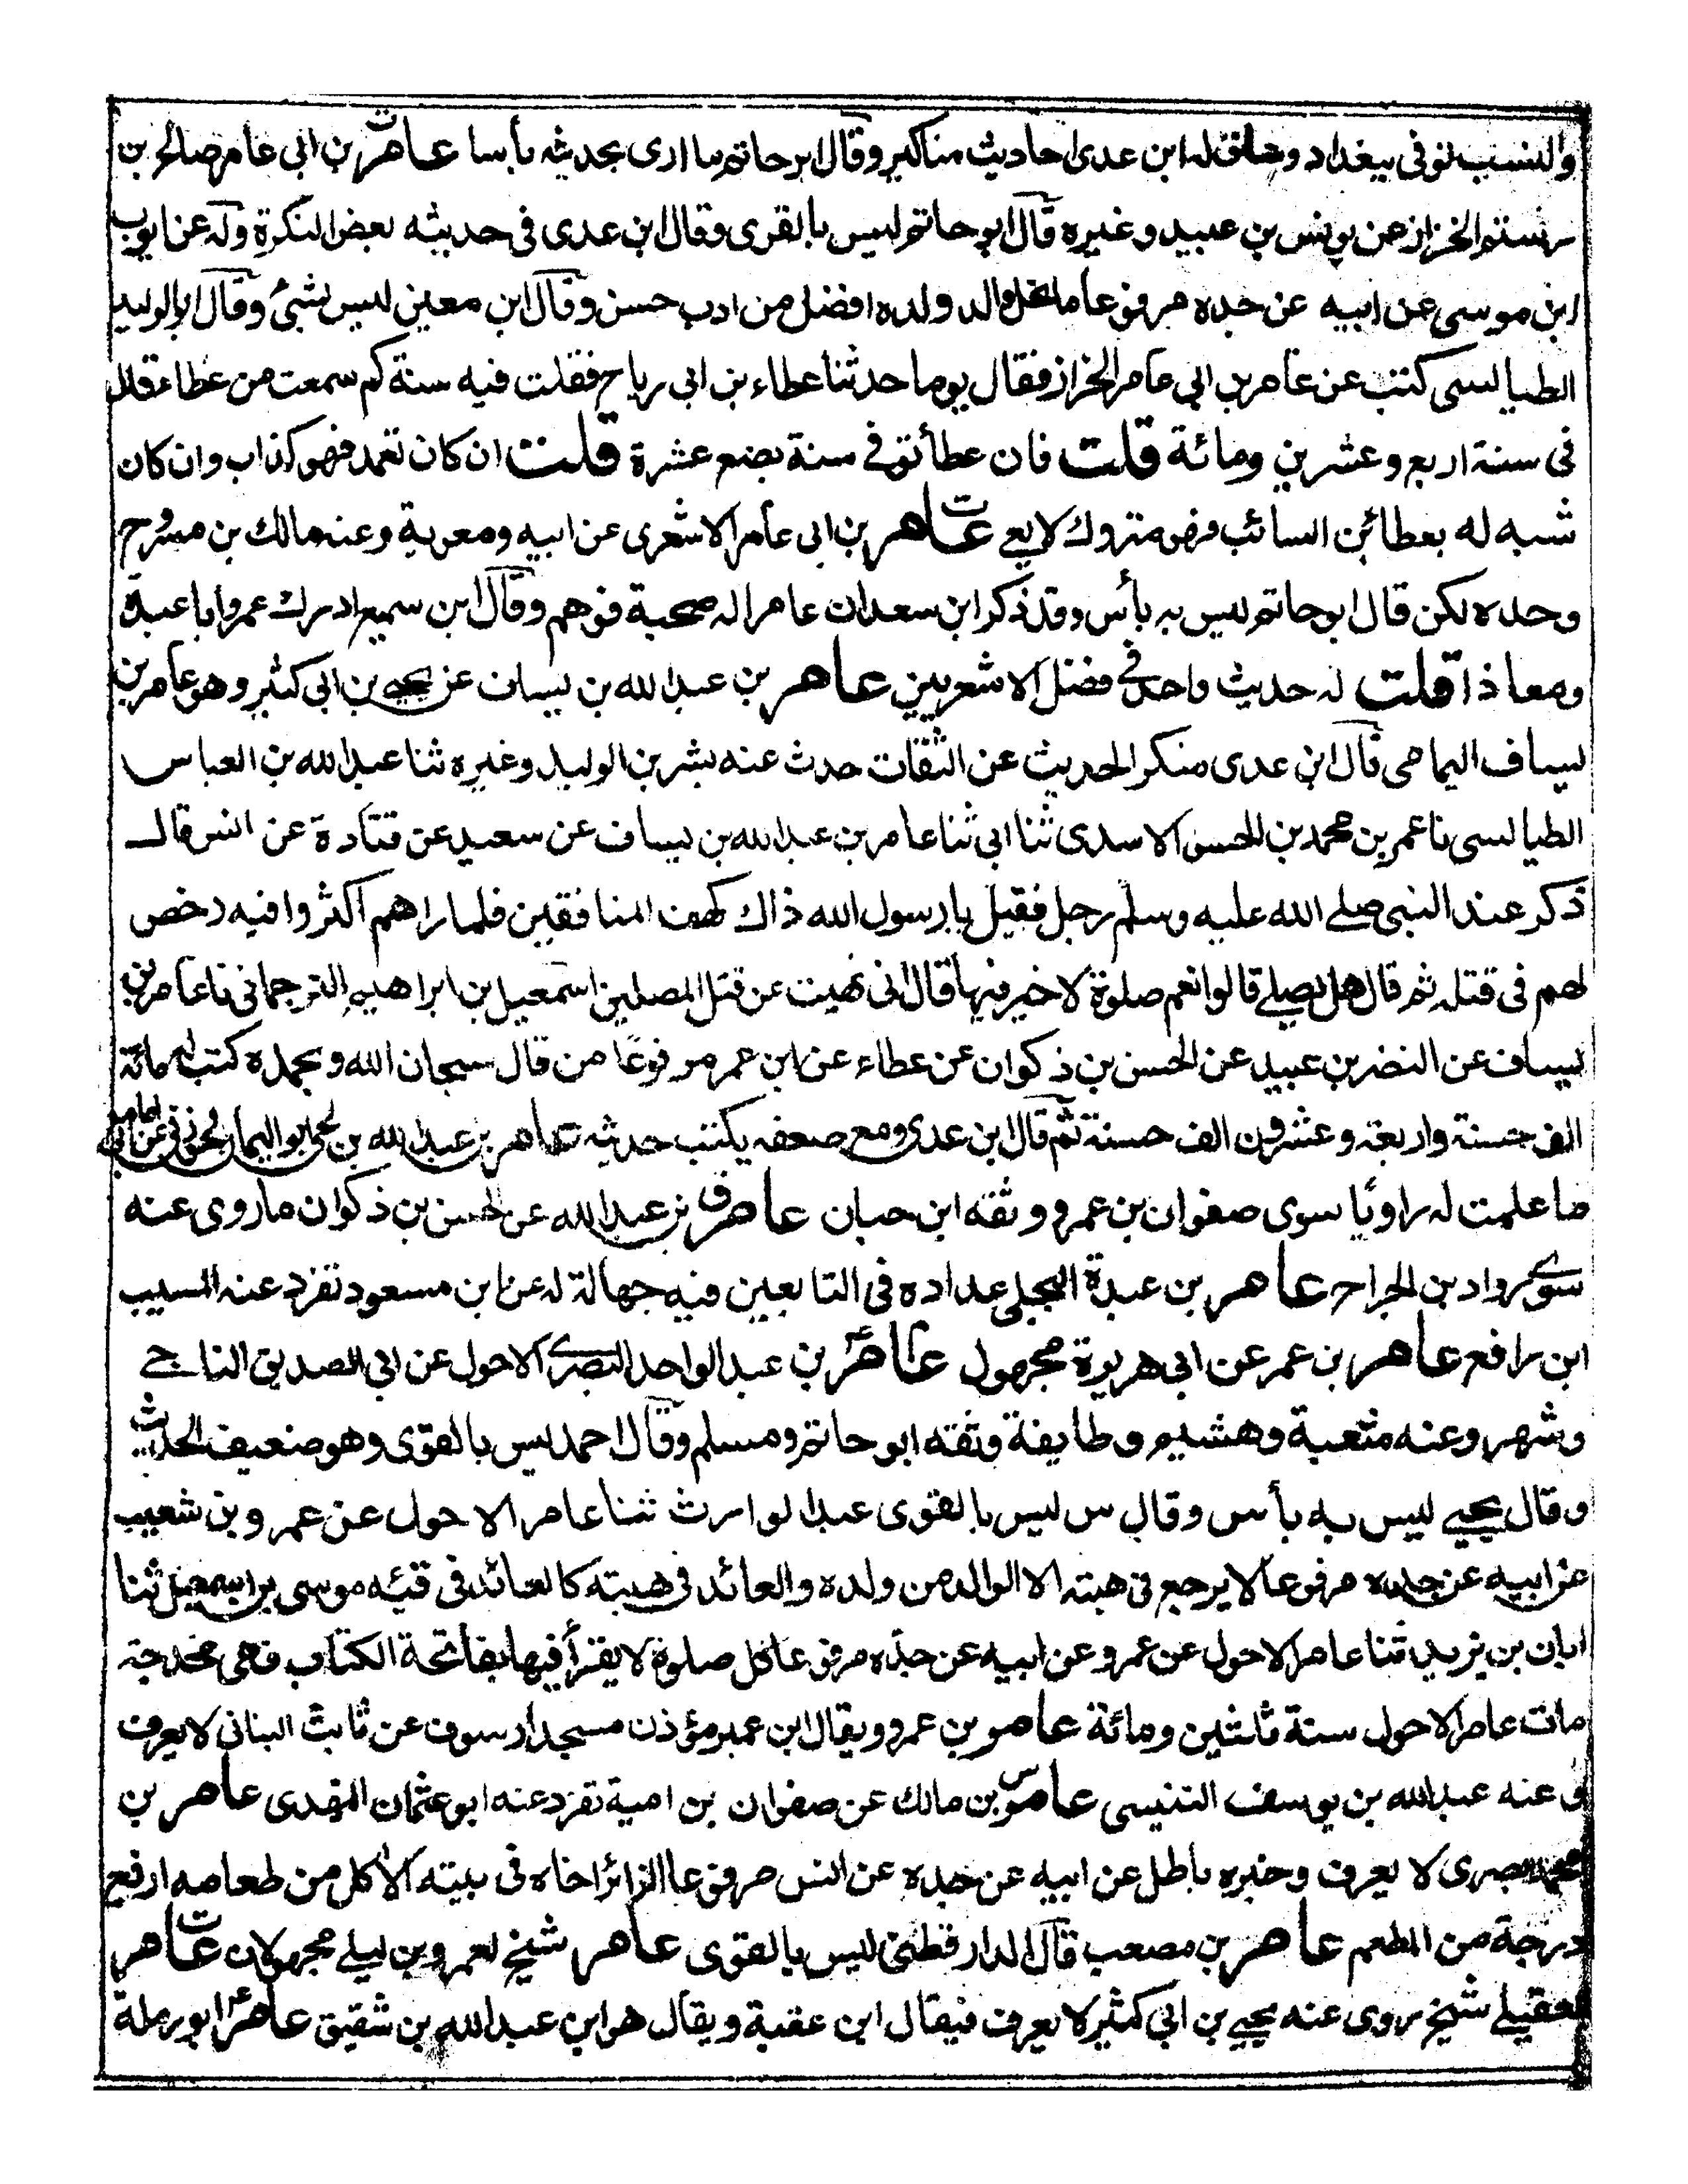 والنسب توفى ببغداد وساق له ابن عدى احاديث مناكير وقال ابو حاتم ما ارى بحديثه بأسا عامر بن ابى عامر صالح بن
رستم الخزاز عن يونس بن عبيد وغيره قال ابو حاتم ليس بالقوى وقال ابن عدى فى حديثه بعض النكرة وله عن ايوب
ابن موسى عن ابيه عن جده مرفوعا ما نحل والد ولده افضل من ادب حسن وقال ابن معين ليس بشئ وقال ابو الوليد
الطيالسى كتبت عن عامر بن ابى عامر الخزاز فقال يوما حدثنا عطاء بن ابى رباح فقلت فيه سنة كم سمعت من عطاء قال
فى سنة اربع وعشرين ومائة قلت فان عطأ توفى سنة بضع عشرة قلت ان كان تعمد فهو كذاب وان كان
شبه له بعطائن السائب فهو متروك لا يعى عامر بن ابى عامر الاشعرى عن ابيه ومعوية وعنه مالك بن مسروح
وحده لكن قال ابو حاتم ليس به بأس وقد ذكر ابن سعد ان عامرا له صحبة فوهم وقال ابن سميع ادرك عمر وابا عبيدة
ومعاذا قلت له حديث واحد فى فضل الاشعريين عامر بن عبد الله بن يساف عن يحيى بن ابى كثير وهو عامر بن
يساف اليمامى قال ابن عدى منكر الحديث عن الثقات حدث عنه بشر بن الوليد وغيره ثنا عبد الله بن العباس
الطيالسى نا عمر بن محمد بن الحسن الاسدى ثنا ابى ثنا عامر بن عبد الله بن يساف عن سعيد عن قتادة عن انس قال
ذكر عند النبى صلے الله عليه وسلم رجل فقيل يا رسول الله ذاك كهف المنافقين فلما راهم اكثروا فيه رخص
لهم فى قتله ثم قال هل يصلے قالوا نعم صلوة لا خير فيها قال انى نهيت عن قتل المصلين اسمعيل بن ابراهيم الترجمانى نا عامر بن
يساف عن النضر بن عبيد عن الحسن بن ذكوان عن عطاء عن ابن عمر مرفوعا من قال سبحان الله وبحمده كتب له مائة
الف حسنة واربعة وعشرون الف حسنة ثم قال ابن عدى ومع ضعفه يكتب حديثه عامر بن عبد الله بن لحى ابو اليمان الهوزنى عن ابى امامة
ما علمت له راويًا سوى صفوان بن عمرو وثقه ابن حبان عامر بن عبد الله عن الحسن بن ذكوان ما روى عنه
سوى رواد بن الجراح عامر بن عبدة البجلى عداده فى التابعين فيه جهالة له عن ابن مسعود تفرد عنه المسيب
ابن رافع عامر بن عمر عن ابى هريرة مجهول عامر بن عبد الواحد البصرى الاحول عن ابى الصديق الناجے
وشهر وعنه شعبة وهشيم وطايفة وثقه ابو حاتم ومسلم وقال احمد ليس بالقوى وهو ضعيف الحديث
وقال يحيے ليس به بأس وقال س ليس بالقوى عبد الوارث ثنا عامر الاحول عن عمرو بن شعيب
عن ابيه عن جده مرفوعا لا يرجع فى هبته الا الوالد من ولده والعائد فى هبته كالعائد فى قيئه موسى بن اسمعيل ثنا
ابان بن يزيد ثنا عامر الاحول عن عمرو عن ابيه عن جده مرفوعا كل صلوة لا يقرأ فيها بفاتحة الكتاب فهى مخدجة
مات عامر الاحول سنة ثلثين ومائة عامر بن عمرو ويقال ابن عمير مؤذن مسجد ارسوف عن ثابت البنانى لا يعرف
و عنه عبد الله بن يوسف التنيسى عامر بن مالك عن صفوان بن امية تفرد عنه ابو عثمان النهدى عامر بن
محمد بصرى لا يعرف وخبره باطل عن ابيه عن جده عن انس مرفوعا الزائر اخاه فى بيته الآكل من طعامه ارفع
درجة من المطعم عامر بن مصعب قال الدارقطنى ليس بالقوى عامر شيخ لعمرو بن ليلے مجهولان عامر
العقيلے شيخ روى عنه يحيے بن ابى كثير لا يعرف فيقال ابن عقبة ويقال هو ابن عبد الله بن شقيق عامر ابو رملة